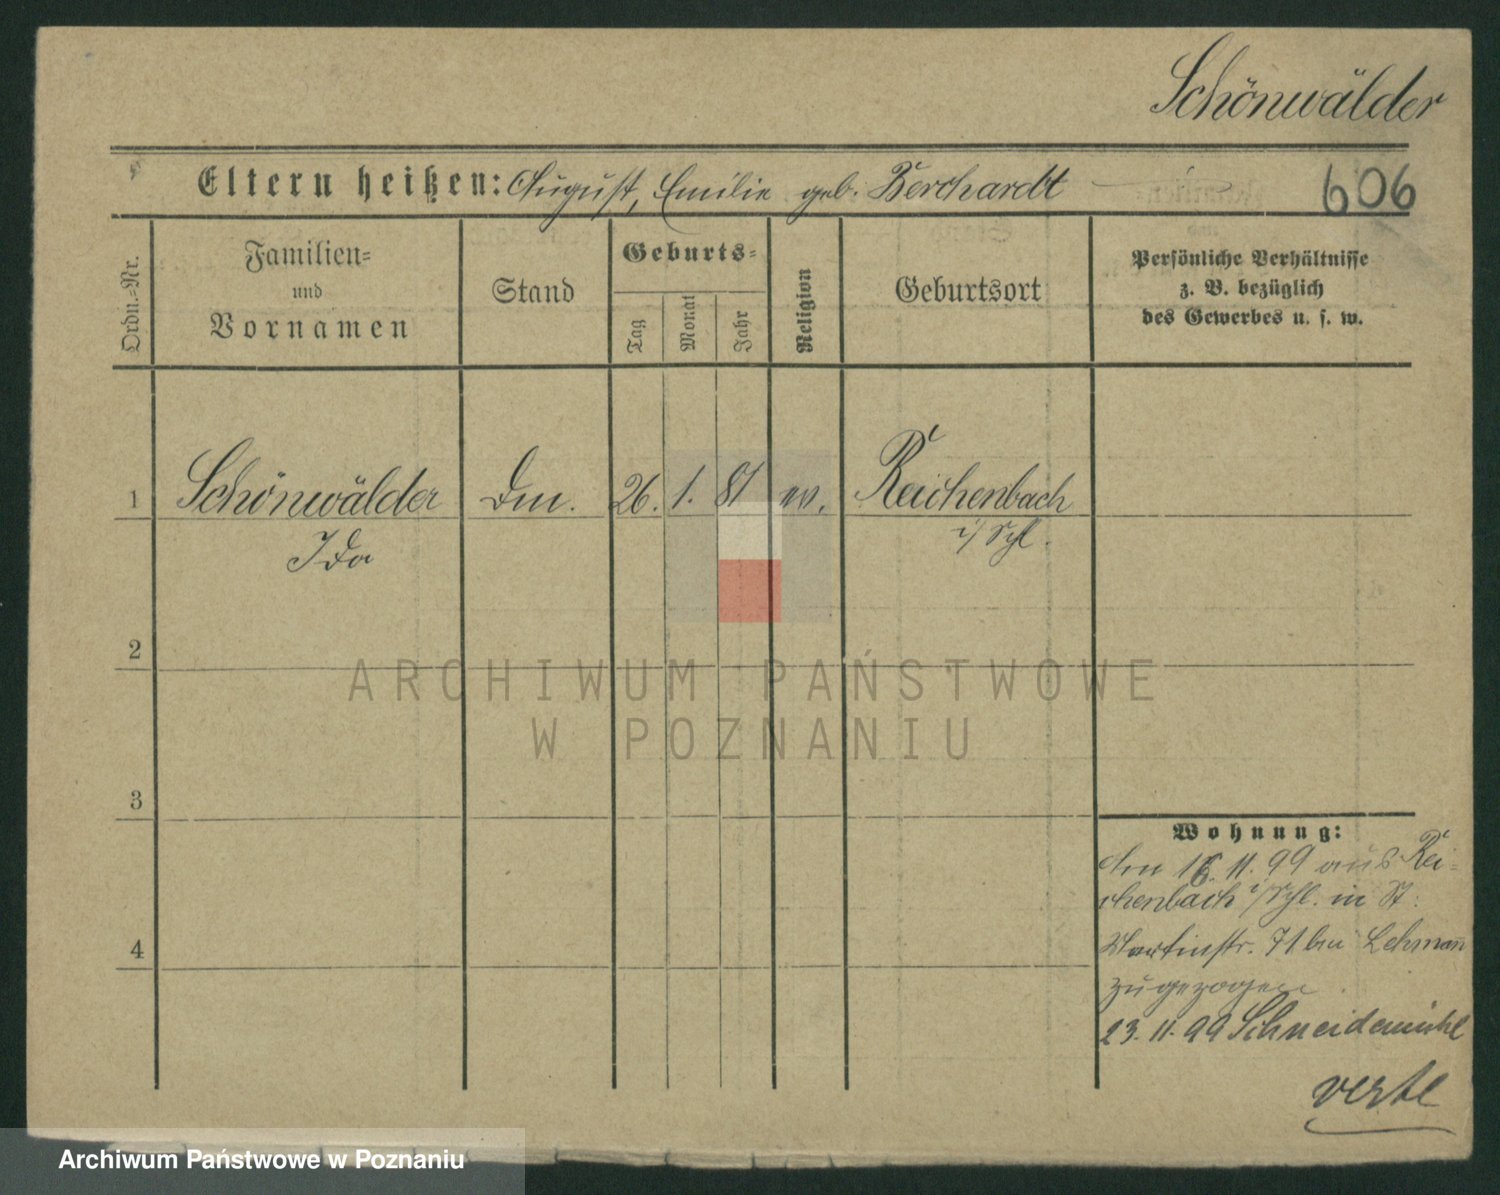 Schönwälder
Eltern heißen: August, Emilie geb. Berchardt
606
Ordn.=Nr.
Familien=
und
Vornamen
Stand
Geburts=
Tag
Monat
Jahr
Religion
Geburtsort
Persönliche Verhältnisse
z. B. bezüglich
des Gewerbes u. s. w.
1
Schönwälder
Ida
26. 1. 81 ev.
Reichenbach
i/Schl.
2
3
4
Wohnung:
16. 11. 99 aus Rei=
chenbach i/Schl. in St.
Martinstr. 71 bei Lehmann
zugezogen
23. 11. 99 Schneidemühl
verte
ARCHIWUM PAŃSTWOWE
W POZNANIU
Archiwum Państwowe w Poznaniu